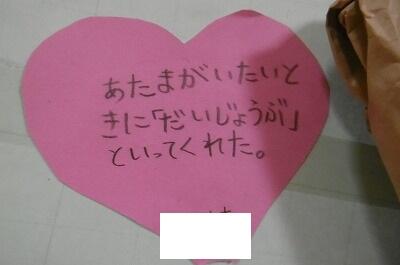 あたまがいたいと
きに「だいじょうぶ」
といってくれた。